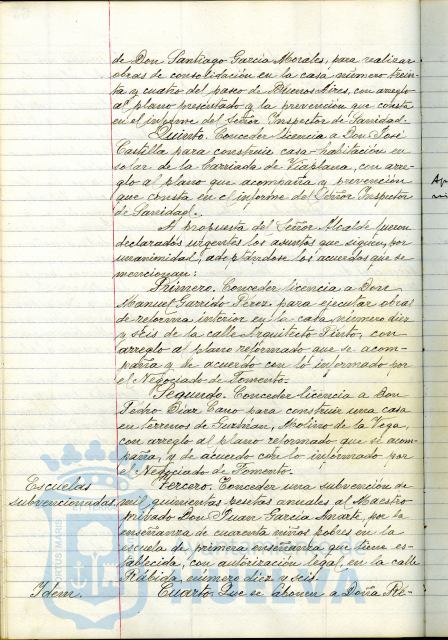 de Don Santiago Garcia Morales, para realizar
obras de consolidación en la casa número trein-
ta y cuatro del paseo de Buenos Aires, con arreglo
al plano presentado y la prevención que consta
en el informe del Señor Inspector de Sanidad.
Quinto. Conceder licencia a Don José
Castilla para construir casa-habitación en
solar de la Barriada de Viaplana, con arre-
glo al plano que acompaña y prevención
que consta en el informe del Señor Inspector
de Sanidad.
A propuesta del Señor Alcalde fueron
declarados urgentes los asuntos que siguen, por
unanimidad, adoptándose los acuerdos que se
mencionan:
Primero. Conceder licencia a Don
Manuel Garrido Perez para ejecutar obras
de reforma interior en la casa número diez
y seis de la calle Arquitecto Pinto, con
arreglo al plano reformado que se acom-
paña y de acuerdo con lo informado por
el Negociado de Fomento.
Segundo. Conceder licencia a Don
Pedro Diaz Cano para construir una casa
en terrenos de Guzmán, Molino de la Vega,
con arreglo al plano reformado que se acom-
paña, y de acuerdo con lo informado por
el Negociado de Fomento.
Escuelas
subvencionadas
Tercero. Conceder una subvención de
mil quinientas pesetas anuales al Maestro
privado Don Juan Garcia por la
enseñanza de cuarenta niños pobres en la
escuela de primera enseñanza que tiene es-
tablecida, con autorización legal, en la calle
Rábida, número diez y seis.
Idem.
Cuarto. Que se abonen a Doña Re-
HUELVA